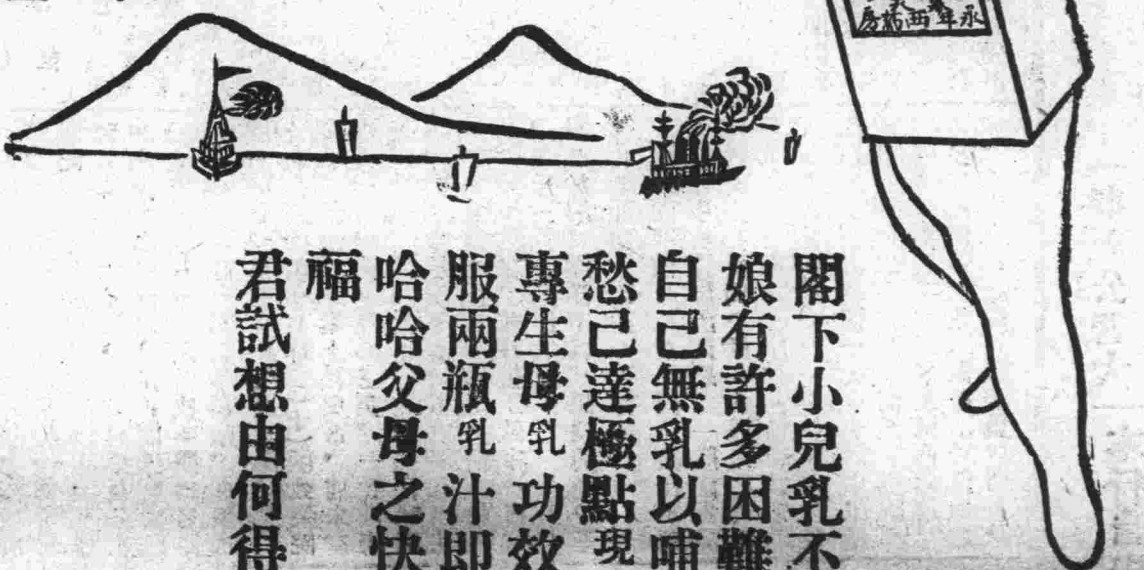 閣下小兒乳不
娘有許多困難
自己無乳以哺
愁己達極點現
專生母乳功效
服兩瓶乳汁即
哈哈父母之快
福
君試想由何得
永年西
房